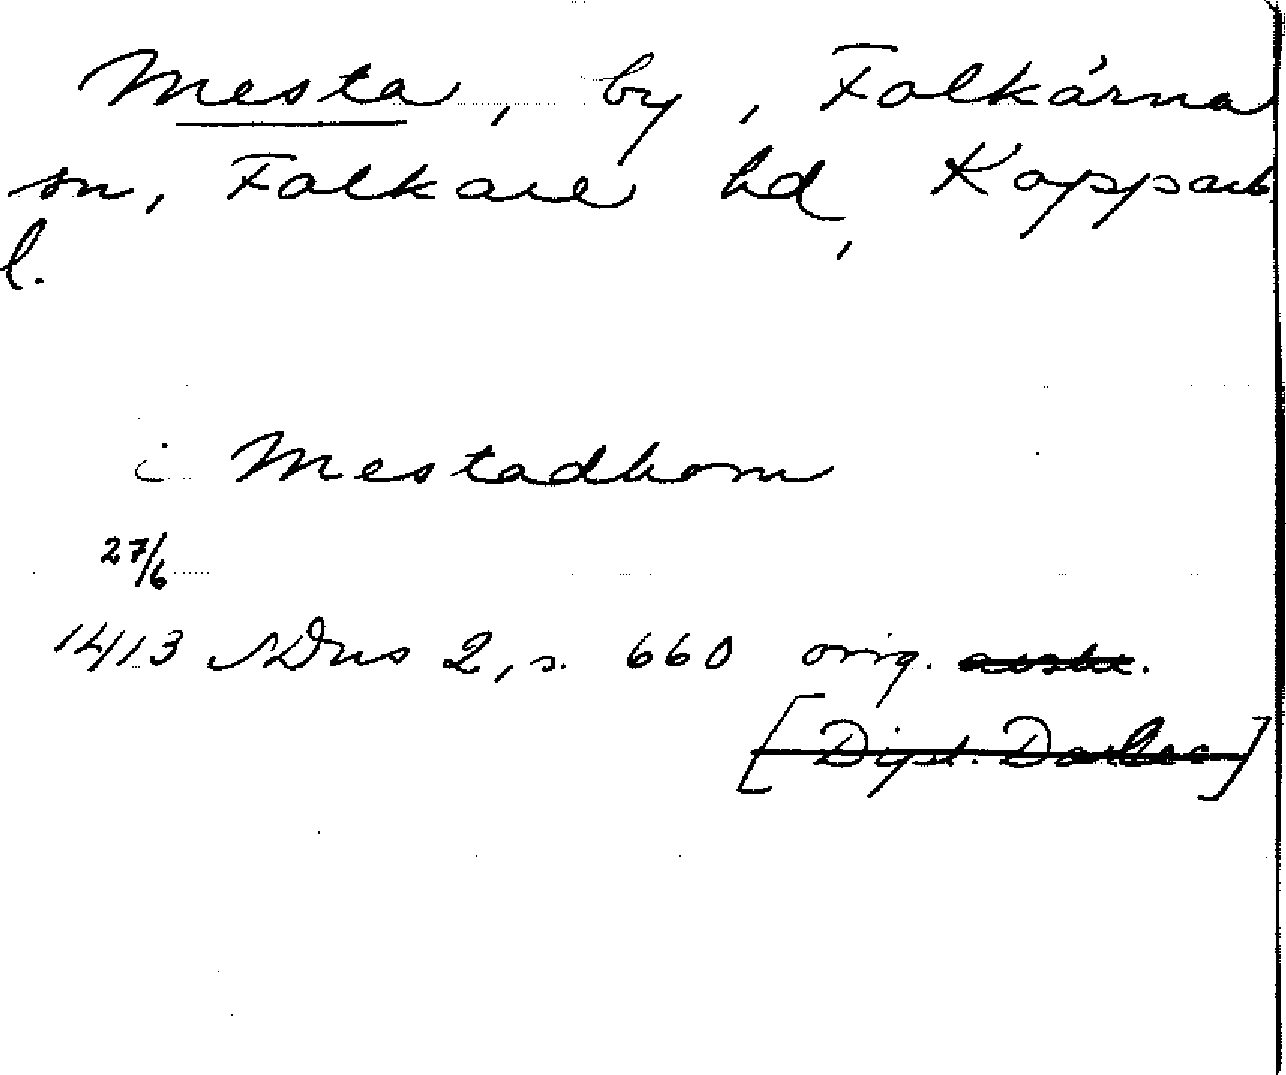 Mesta, by, Folkärna
sn, Folkare hd, Kopparb.
l.
i Mestadhom
27/6
1413 NDns 2, s. 660 orig. avskr.
[Dipl. Dalec]